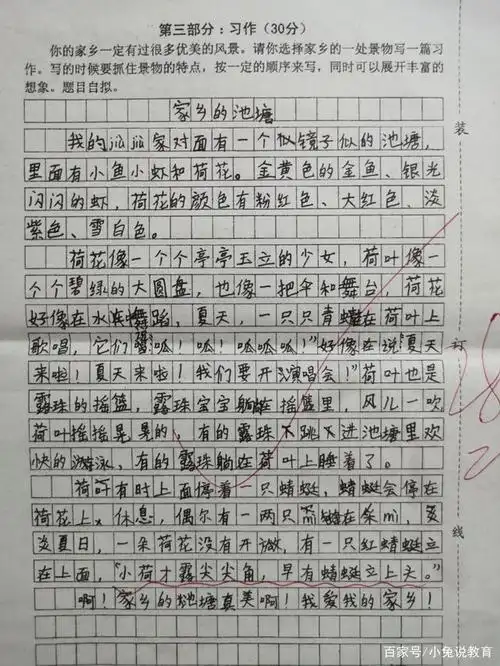 第三部分：习作（30分）
你的家乡一定有过很多优美的风景。请你选择家乡的一处景物写一篇习
作。写的时候要抓住景物的特点，按一定的顺序来写，同时可以展开丰富的
想象。题目自拟。
家乡的池塘
我的jiù jiu家对面有一个似镜子似的池塘，
里面有小鱼小虾和荷花。金黄色的金鱼、银光
闪闪的虾，荷花的颜色有粉红色、大红色、淡
紫色、雪白色。
荷花像一个个亭亭玉立的少女，荷叶像一
个个碧绿的大圆盘，也像一把伞和舞台，荷花
好像在水舞蹈，夏天，一只只青蛙在荷叶上
歌唱，它们呱！呱！呱呱呱！”好像在说“夏天
来啦！夏天来啦！我们要开演唱会！”荷叶也是
露珠的摇篮，露珠宝宝躺在摇篮里，风儿一吹
荷叶摇摇晃晃的，有的露珠下跳下进池塘里欢
快的游泳，有的露珠躺在荷叶上睡着了。
荷叶有时上面停着一只蜻蜓，蜻蜓会停在
荷花上休息，偶尔有一两只mì在采mì，炎
炎夏日，一朵荷花没有开放，有一只红蜻蜓立
在上面，“小荷才露尖尖角，早有蜻蜓立上头。”
啊！家乡的池塘真美啊！我爱我的家乡！
装
订
线
28
百家号/小兔说教育